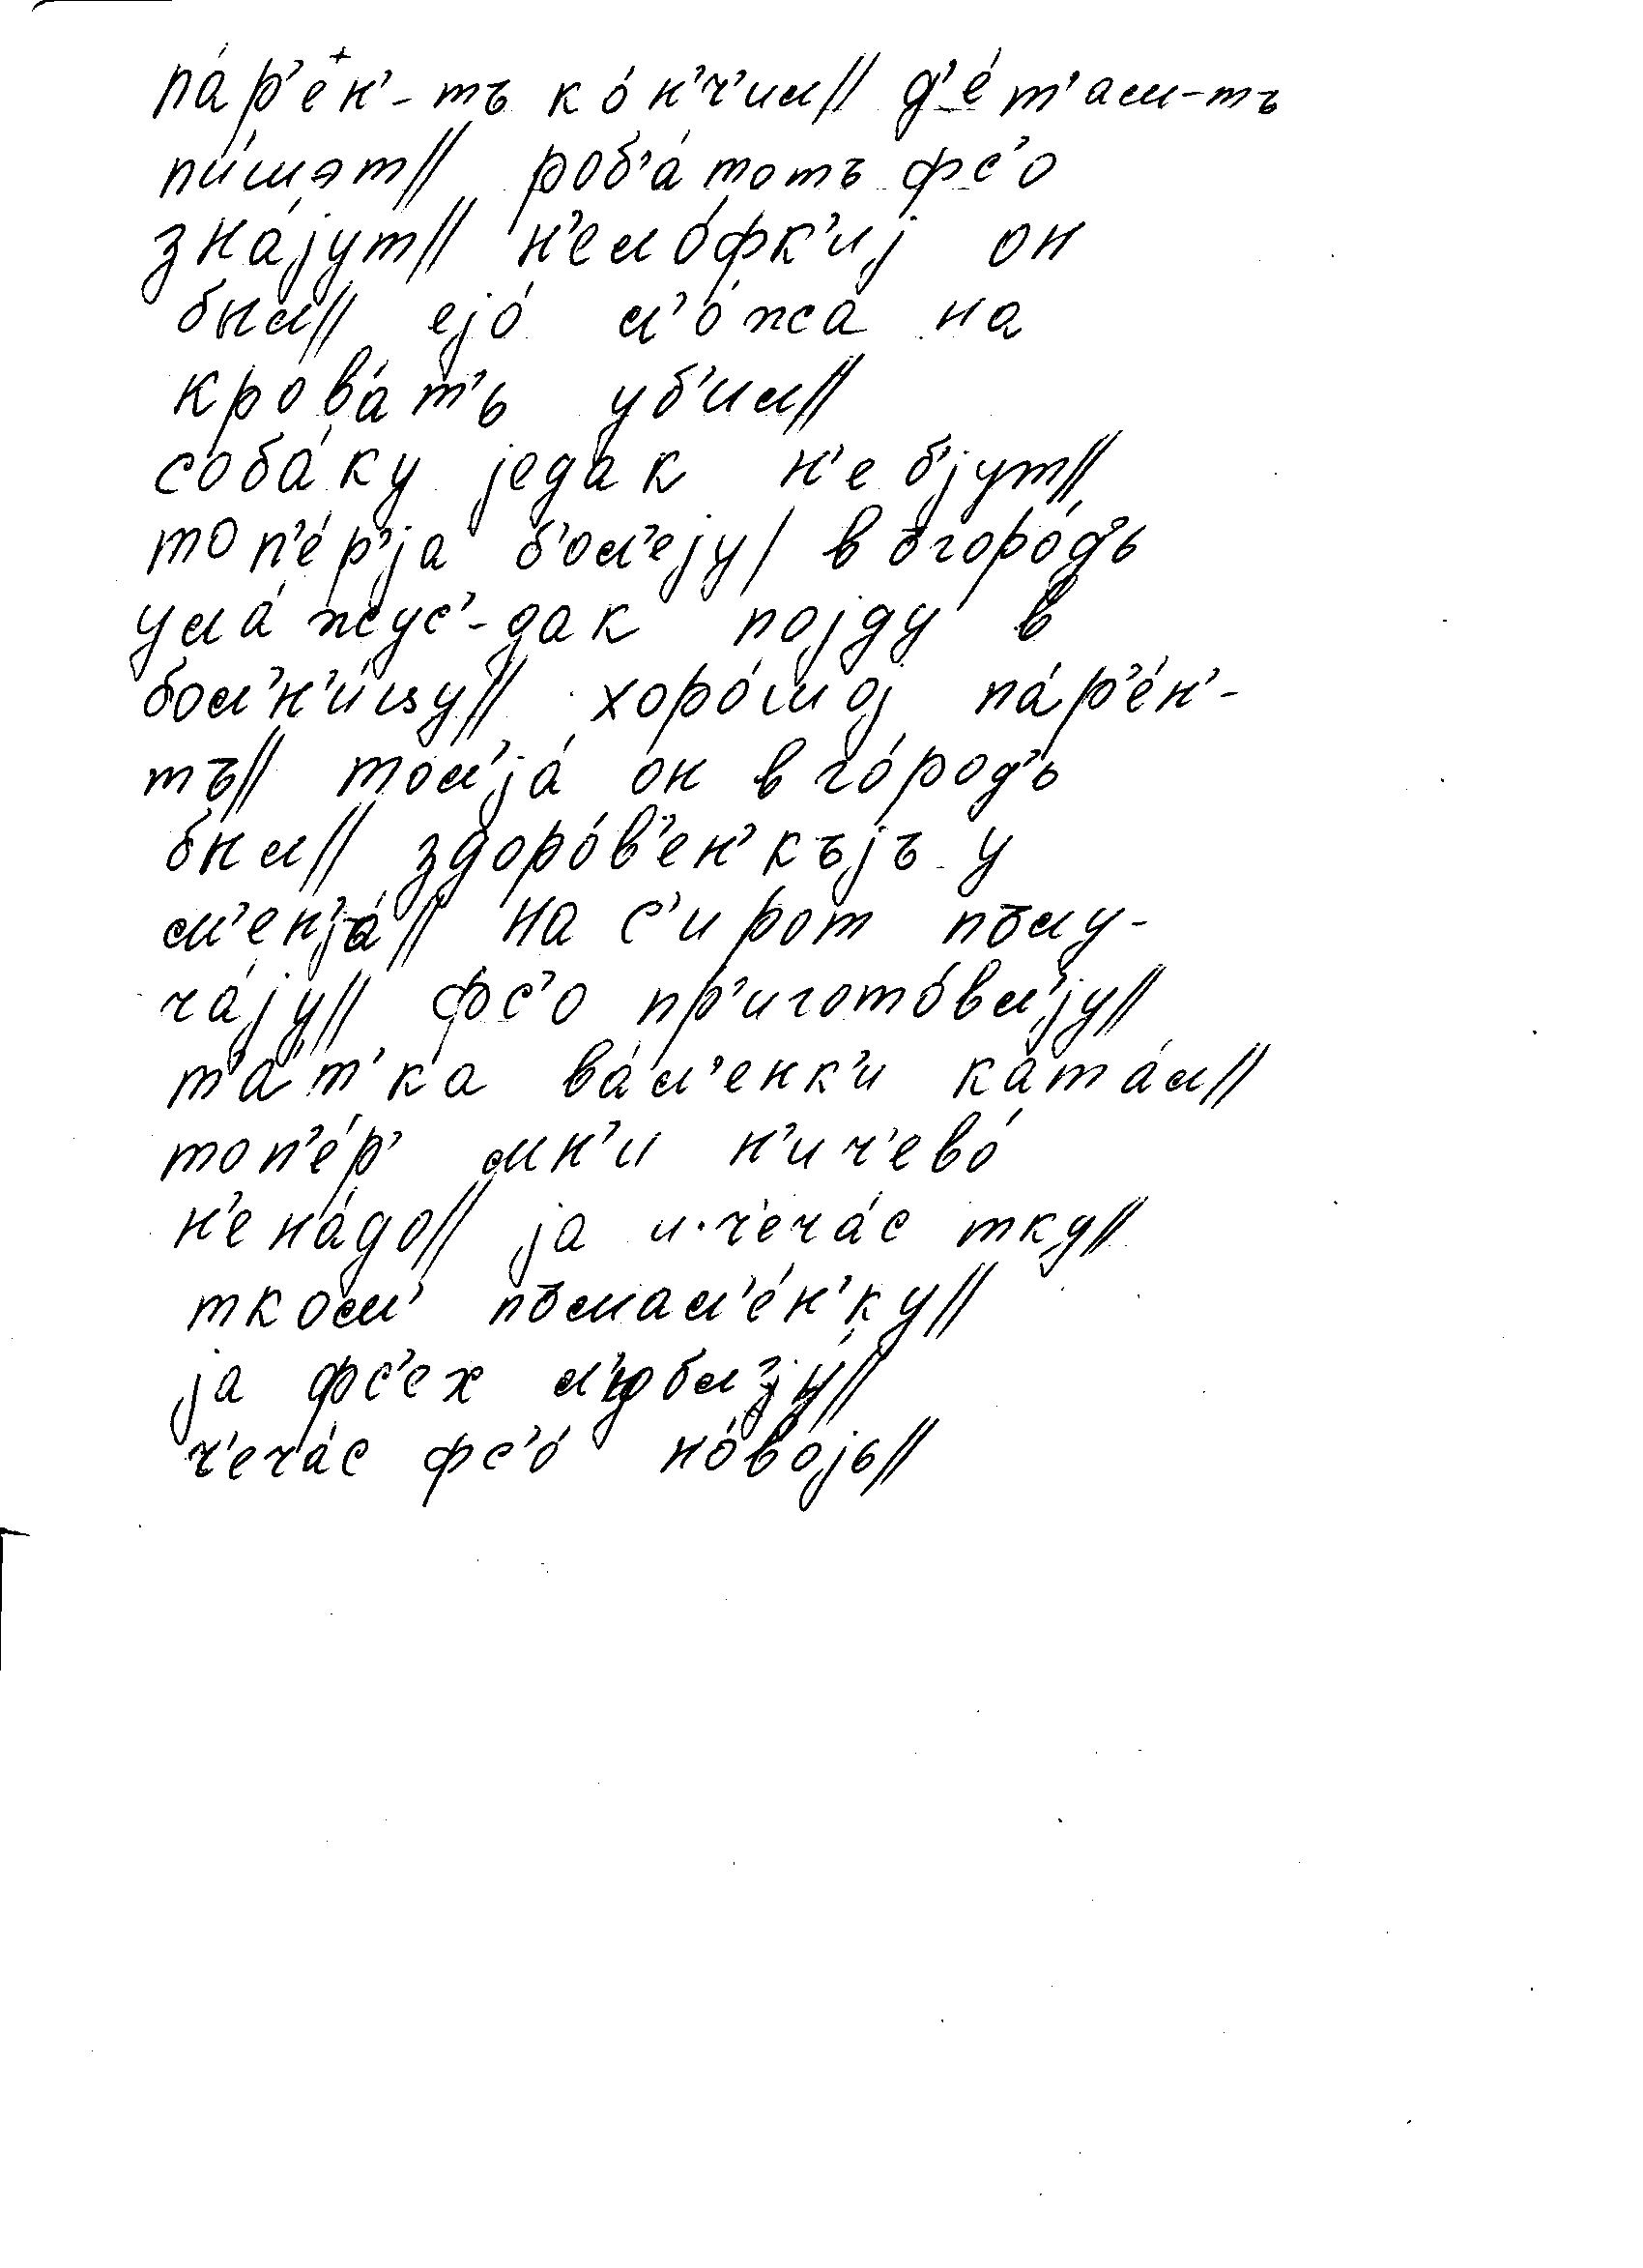 па́р'е̇н'-тъ ко́н'ч'ил// д'е́т'ам-тъ
пи́шэт// роб'а́тотъ фс'о
зна́јут// н'ело́фк'иј он
был// ејо́ л'о́жа на
крова́т'ь уб'ил//
соба́ку једак н'е б'јут//
топ'е́р'ја б'ол'еју/ в огоро́д'ь
ула́жус'-дак појду в
бол'н'и́цу// хоро́шој па́р'е́н'-
тъ// тол'ја́ он в го́род'ь
был// здоро́в'ен'къјъ у
м'ен'ја́// на с'ирот полу-
ча́ју// фс'о пр'игото́вл'ју//
т'а́т'ка ва́л'енк'и ката́л//
топ'е́р' мн'и н'ич'ево́
н'е на́до// ја и ч'еча́с тку//
ткол' помал'е́н'ку//
ја фс'ех л'убл'ју́//
ч'еча́с фс'о́ но́војь//